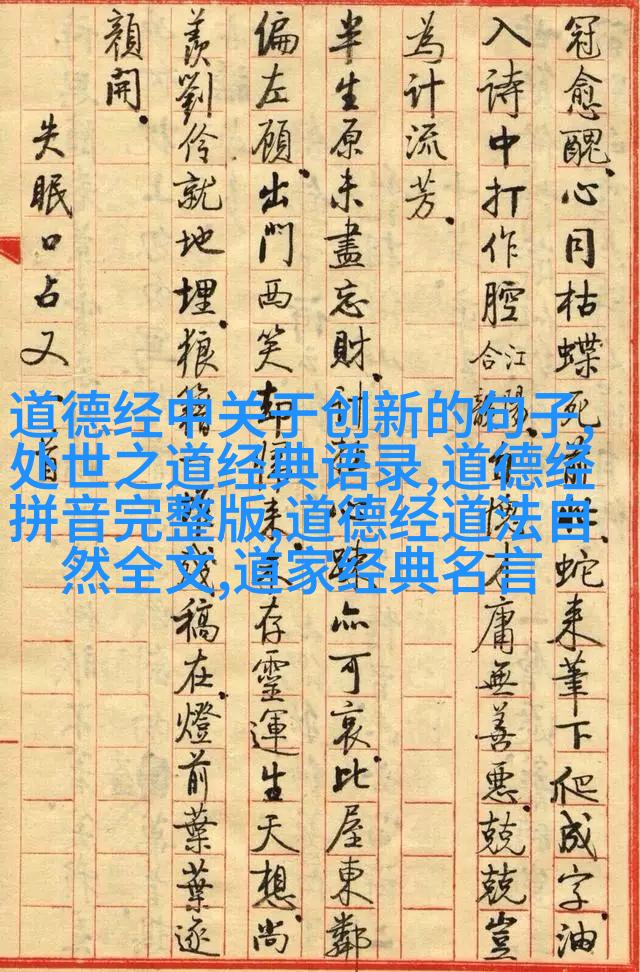 冠愈醜。心同枯蝶死前蛇来筆下爬成字。油
入詩中打作腔江陽合韻才庸無善惡。兢兢豈
為計流芳。
半生原未盡忘財。計疎亦可哀。比屋東鄰
偏左顧。出門西笑却来。存靈運生天想。尚
羨劉伶就地埋。狼籍成稿在。燈前葉葉逐
顏開。
失眠口占又首
道德经中关于创新的句子,
处世之道经典语录,道德经
拼音完整版,道德经道法自
然全文,道家经典名言